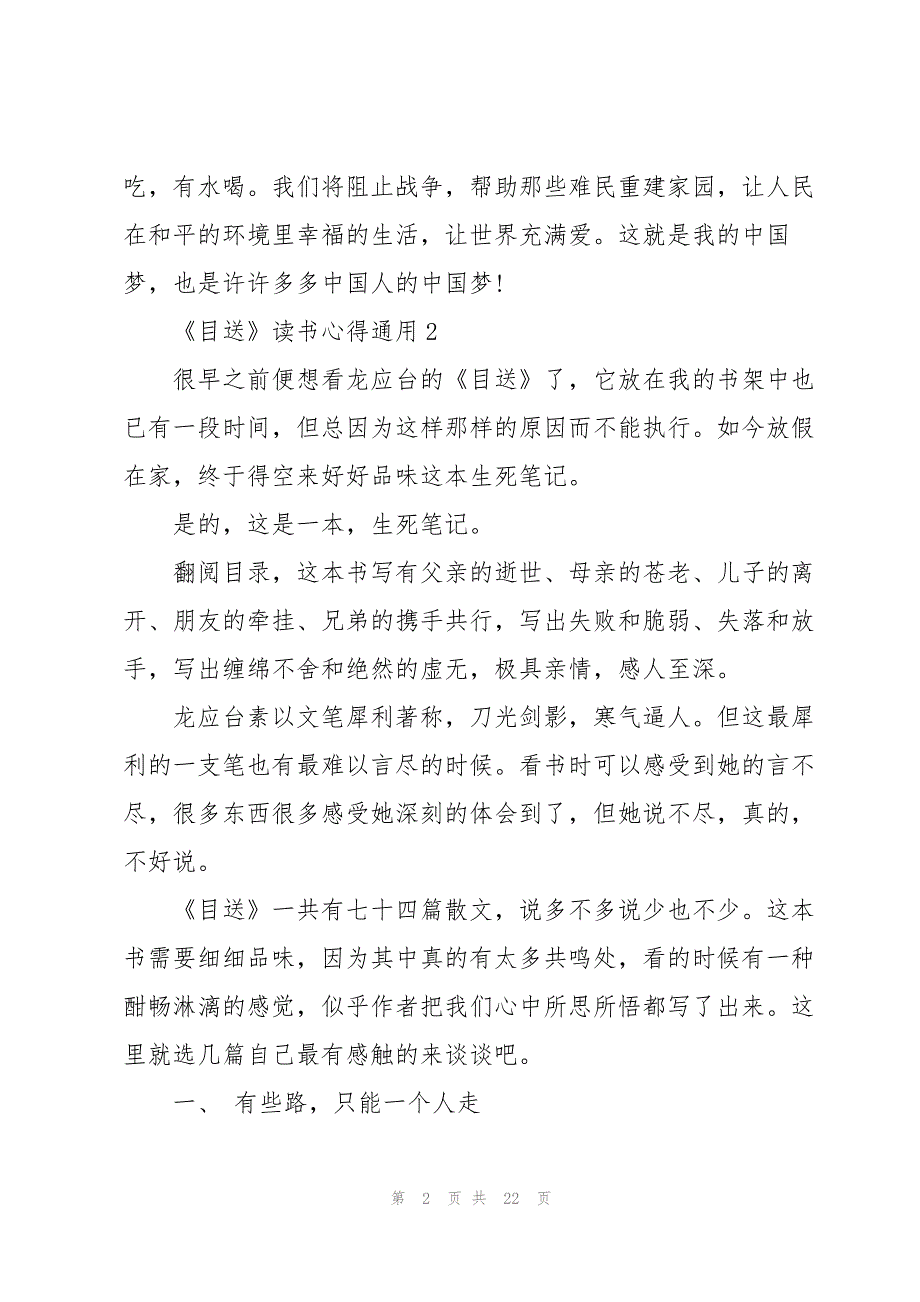 吃，有水喝。我们将阻止战争，帮助那些难民重建家园，让人民
在和平的环境里幸福的生活，让世界充满爱。这就是我的中国
梦，也是许许多多中国人的中国梦!
《目送》读书心得通用2
很早之前便想看龙应台的《目送》了，它放在我的书架中也
已有一段时间，但总因为这样那样的原因而不能执行。如今放假
在家，终于得空来好好品味这本生死笔记。
是的，这是一本，生死笔记。
翻阅目录，这本书写有父亲的逝世、母亲的苍老、儿子的离
开、朋友的牵挂、兄弟的携手共行，写出失败和脆弱、失落和放
手，写出缠绵不舍和绝然的虚无，极具亲情，感人至深。
龙应台素以文笔犀利著称，刀光剑影，寒气逼人。但这最犀
利的一支笔也有最难以言尽的时候。看书时可以感受到她的言不
尽，很多东西很多感受她深刻的体会到了，但她说不尽，真的，
不好说。
《目送》一共有七十四篇散文，说多不多说少也不少。这本
书需要细细品味，因为其中真的有太多共鸣处，看的时候有一种
酣畅淋漓的感觉，似乎作者把我们心中所思所悟都写了出来。这
里就选几篇自己最有感触的来谈谈吧。
一、 有些路，只能一个人走
第 2 页 共 22 页